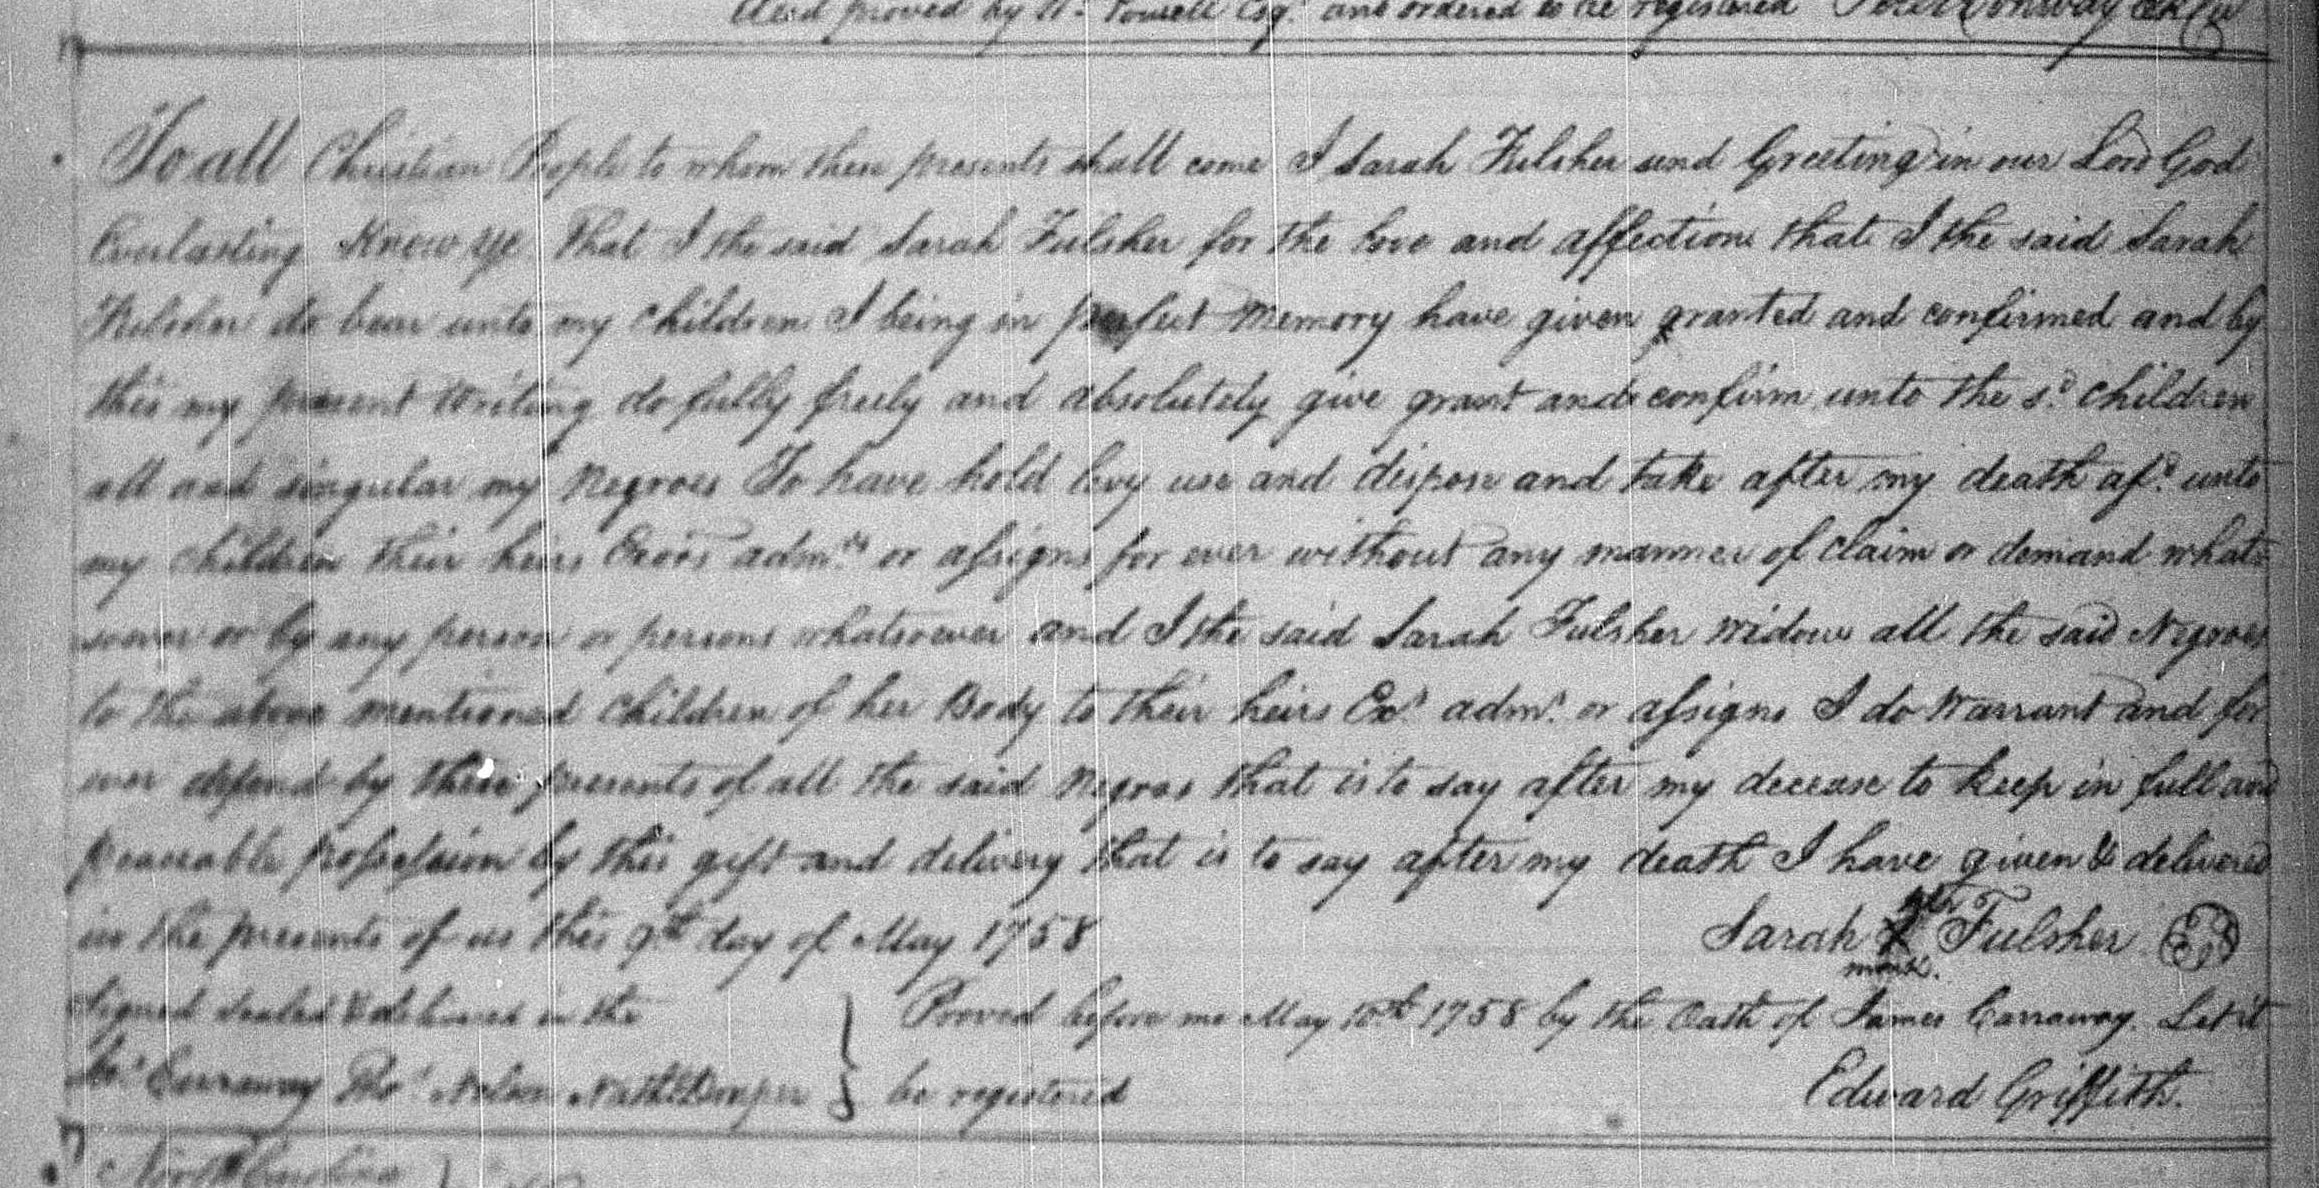 And proved by Powell Esq.r and ordered to be registered Peter Conway
To all Christian People to whom these presents shall come I Sarah Fulsher send Greeting in our Lord God
Everlasting Know ye That I the said Sarah Fulsher for the love and affection that I the said Sarah
Fulsher do bear unto my children I being in perfect Memory have given granted and confirmed and by
this my present Writing do fully freely and absolutely give grant and confirm unto the s.d children
all and singular my Negroes To have hold use and dispose and take after my death afs.d unto
my children their heirs Exors adm.rs or assigns for ever without any manner of claim or demand what
soever or by any person or persons whatsoever and I the said Sarah Fulsher widow all the said Negroes
to the above mentioned children of her Body to their heirs Ex.s adm.s or assigns I do Warrant and for
ever defend by these presents of all the said Negros that is to say after my decease to keep in full and
peaceable possession by this gift and delivery that is to say after my death I have given & delivered
in the presents of us this 9th day of May 1758 Sarah Fulsher
mark.
Signed sealed & delivered in the Proved before me May 10th 1758 by the Oath of James Carraway. Let it
Carraway Tho.s Nelson be registered Edward Griffith.
North Carolina